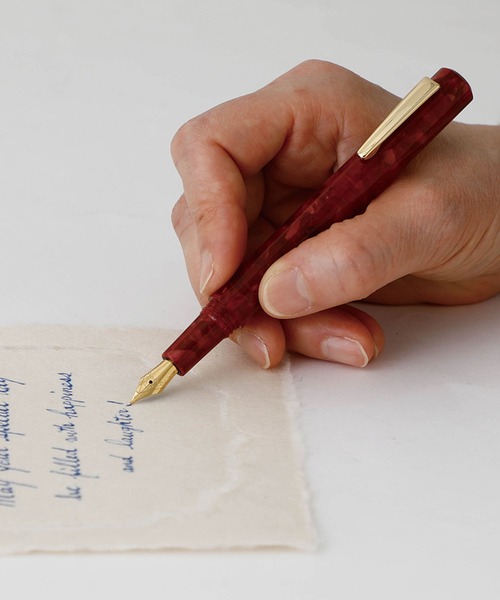 May your special day
be filled with happiness
and laughter!